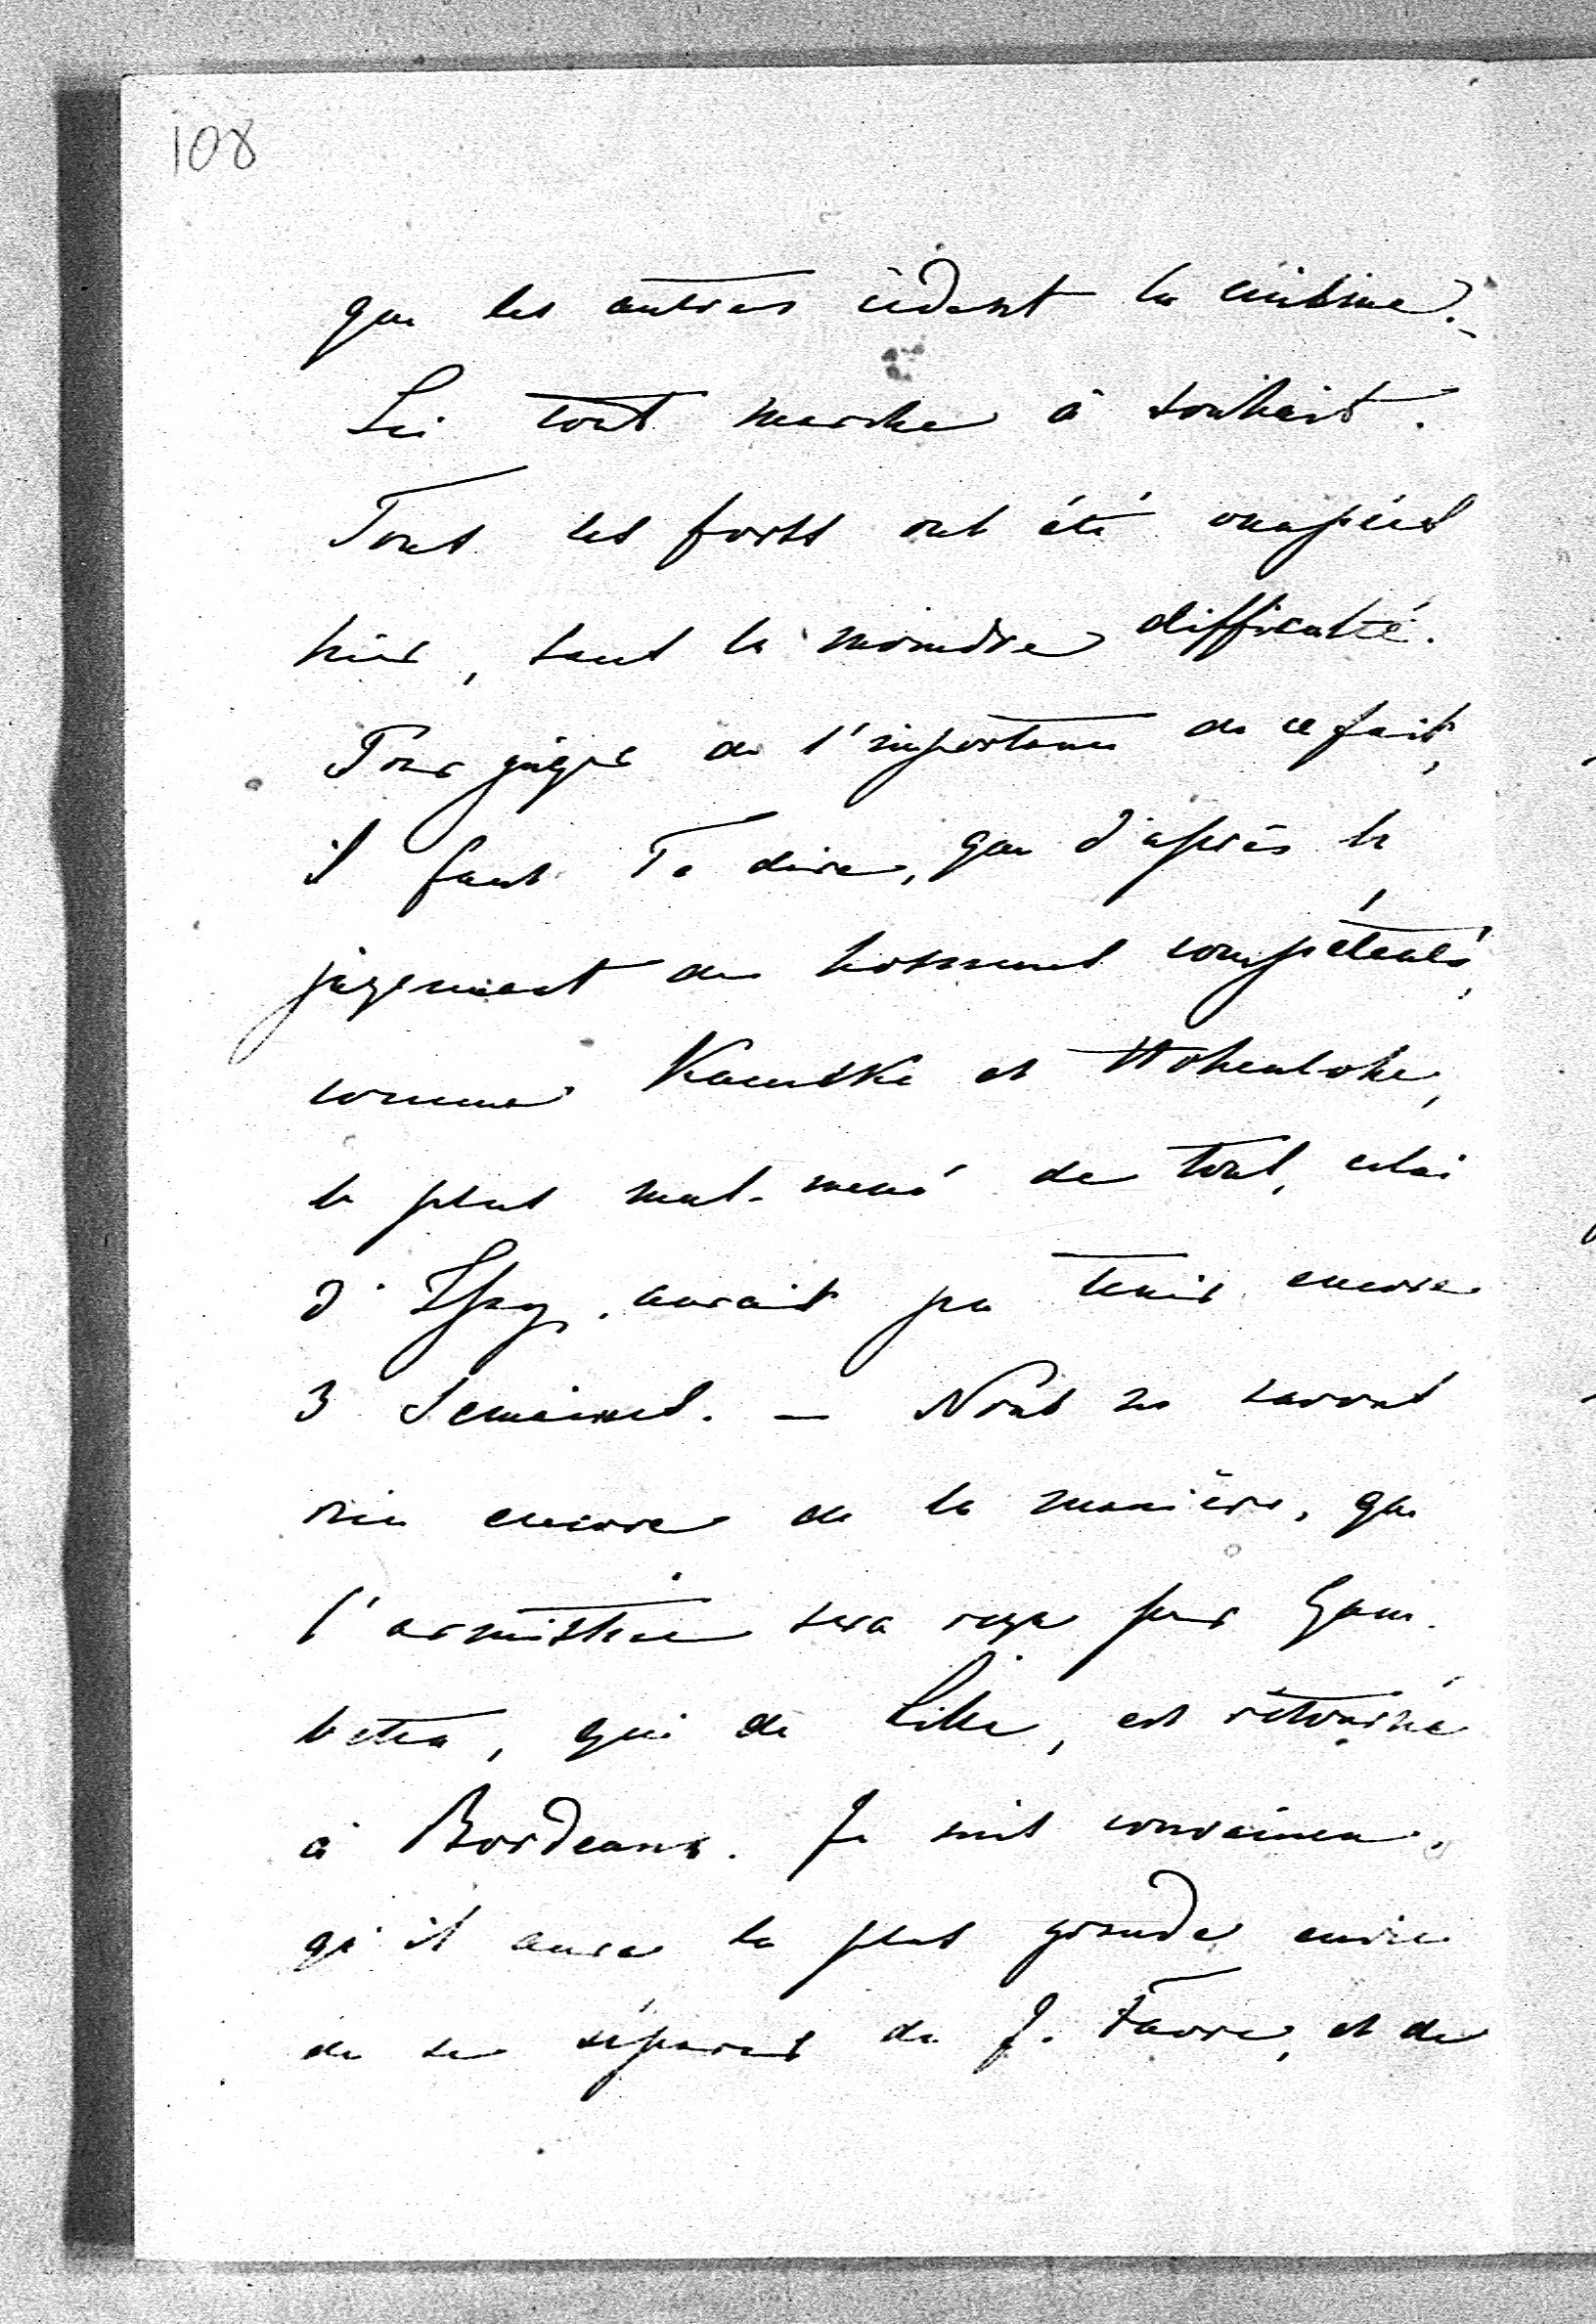 108
que les autres cèdent la cuisine.
Ici tout marche à souhait.
Tous les forts ont été occupés
hier, sans la moindre difficulté.
Pour juger de l'importance de ce fait,
il faut Te dire, que d'après le
jugement des hommes compétents,
comme Kameke et Hohenlohe,
le plus mal-mené de tous, celui
d'Issy, aurait pu tenir encore
3 semaines. — Nous ne savons
rien encore de la manière, que
l'armistice sera reçu par Gam-
betta, qui de Lille, est rétourné
à Bordeaux. Je suis convaincu,
qu'il aura la plus grande envie
de se séparer de J. Favre, et de